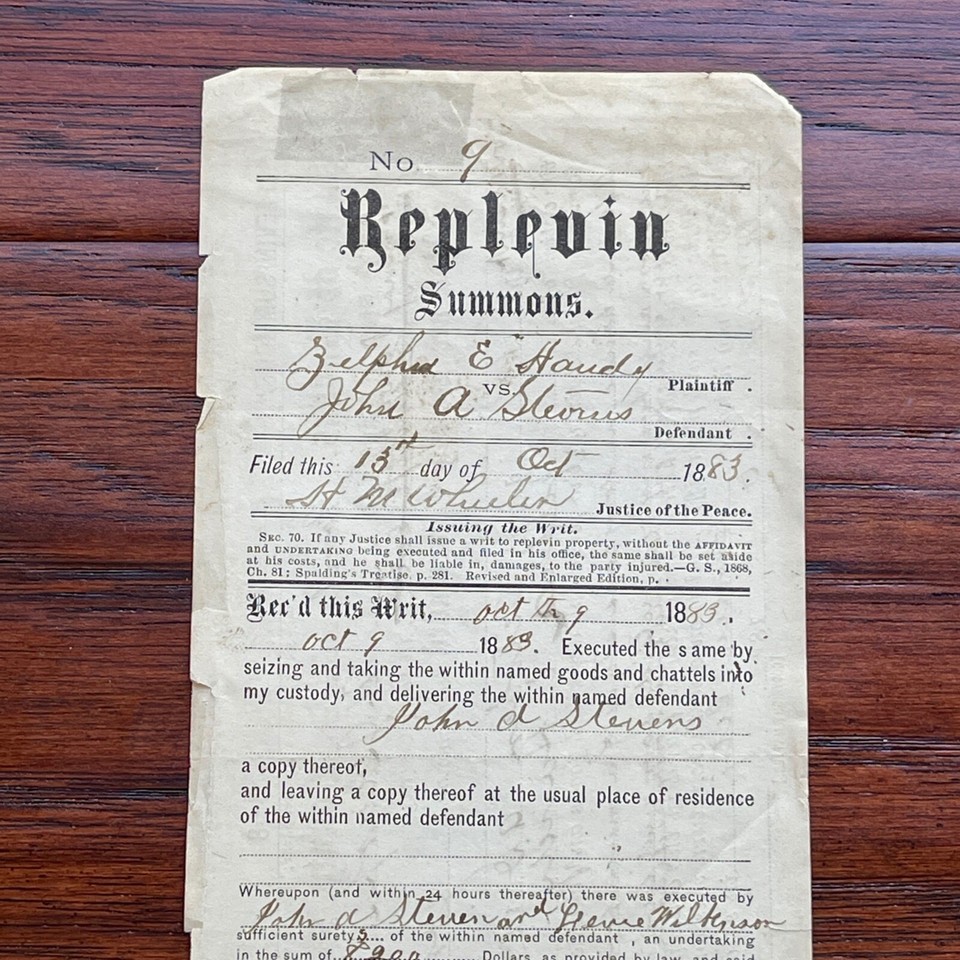 No 9
Replevin
Summons.
Zelphia E Handy Plaintiff .
VS.
John A Stevens
Defendant .
Filed this 15th day of Oct 1883.
H M Wheeler Justice of the Peace.
Issuing the Writ.
SEC. 70. If any Justice shall issue a writ to replevin property, without the AFFIDAVIT
and UNDERTAKING being executed and filed in his office, the same shall be set aside
at his costs, and he shall be liable in, damages, to the party injured.—G. S., 1868,
Ch. 81; Spalding's Treatise. p. 281. Revised and Enlarged Edition, p. .
Rec'd this Writ, oct 9 1883.
oct 9 1883. Executed the same by
seizing and taking the within named goods and chattels into
my custody, and delivering the within named defendant
John A Stevens
a copy thereof,
and leaving a copy thereof at the usual place of residence
of the within named defendant
Whereupon (and within 24 hours thereafter) there was executed by
John A Steven and Wilkenson
sufficient suretys of the within named defendant , an undertaking
in the sum of Dollars, as provided by law, and said